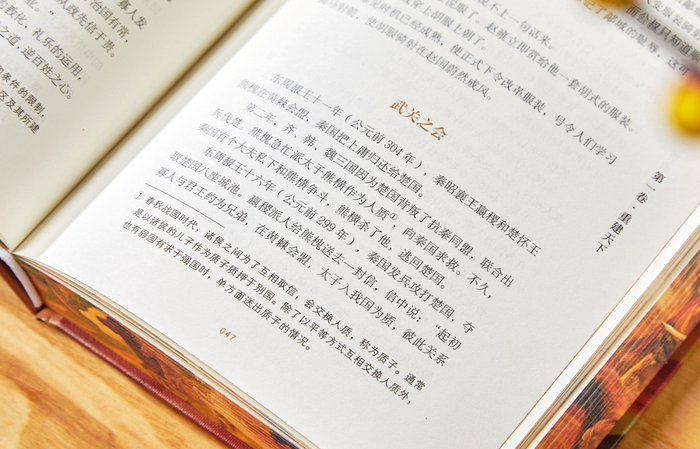 寡人发
治国有常，
从政先信于贵。
的教化、礼乐的运用，
之道，逆百姓之心。
条件的限制，
区及其所建
说不上一句话来。
说服了。赵雍立即赏给他一套胡式的服装。
堂上胡服上朝了。
见时机已经成熟，便正式下令改革服装，号令人们学习
马射箭，使胡服骑射在赵国蔚然成风。
武关之会
东周赧王十一年（公元前304年），秦昭襄王嬴稷和楚怀王
熊槐在黄棘会盟，秦国把上庸归还给楚国。
第二年，齐、韩、魏三国因为楚国背叛了抗秦同盟，联合出
兵伐楚。熊槐急忙派太子熊横作为人质①，向秦国求救。不久，
秦国有个大夫私下和熊横争斗，熊横杀了他，逃回楚国。
东周赧王十六年（公元前299年），秦国发兵攻打楚国，夺
取楚国八座城池。嬴稷派人给熊槐送去一封信，信中说：“起初
寡人与君王约为兄弟，在黄棘会盟，太子入我国为质，彼此关系
① 春秋战国时代，诸侯之间为了互相取信，会交换人质，称为质子。通常
是以诸侯的儿子作为质子质押于别国。除了以平等方式互相交换人质外，
也有弱国有求于强国时，单方面送出质子的情况。
047
第一卷 重建天下
的耻辱，这可